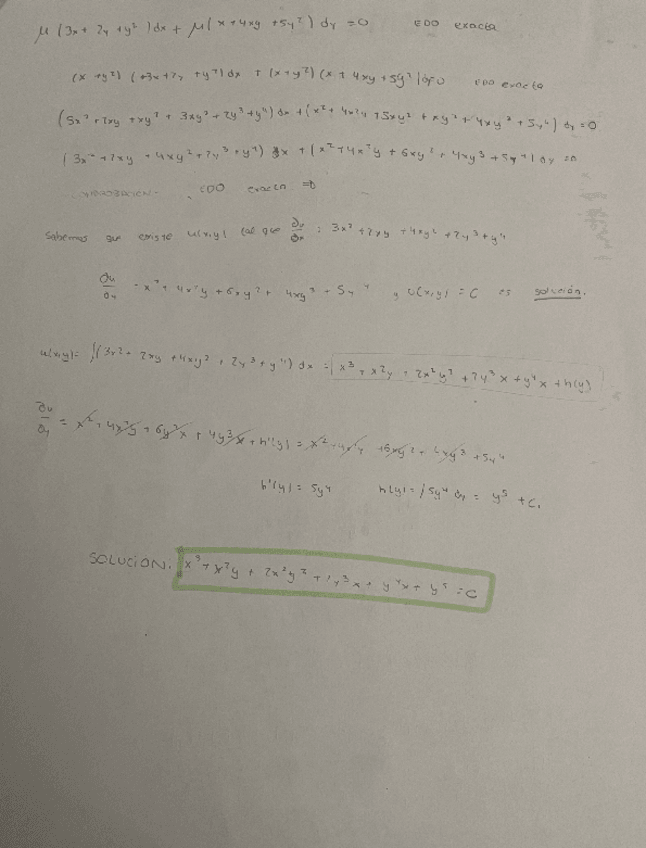 μ (3x + 2y + y²) dx + μ (x + 4xy + 5y²) dy = 0 EDO exacta
(x + y²) (3x + 2y + y²) dx + (x + y²) (x + 4xy + 5y²) dy = 0 EDO exacta
(3x² + 2xy + xy² + 3xy² + 2y³ + y⁴) dx + (x² + 4x²y + 5xy² + xy² + 4xy³ + 5y⁴) dy = 0
(3x² + 2xy + 4xy² + 2y³ + y⁴) dx + (x² + 4x²y + 6xy² + 4xy³ + 5y⁴) dy = 0
EDO exacta ⇒
Sabemos que existe u(x,y) tal que ∂u/∂x = 3x² + 2xy + 4xy² + 2y³ + y⁴
∂u/∂y = x² + 4x²y + 6xy² + 4xy³ + 5y⁴ y u(x,y) = C es solución.
u(x,y) = ∫(3x² + 2xy + 4xy² + 2y³ + y⁴) dx = x³ + x²y + 2x²y² + 2y³x + y⁴x + h(y)
∂u/∂y = x² + 4x²y + 6y²x + 4y³x + h'(y) = x² + 4x²y + 6xy² + 4xy³ + 5y⁴
h'(y) = 5y⁴ h(y) = ∫5y⁴ dy = y⁵ + C.
SOLUCIÓN: x³ + x²y + 2x²y² + 2y³x + y⁴x + y⁵ = C